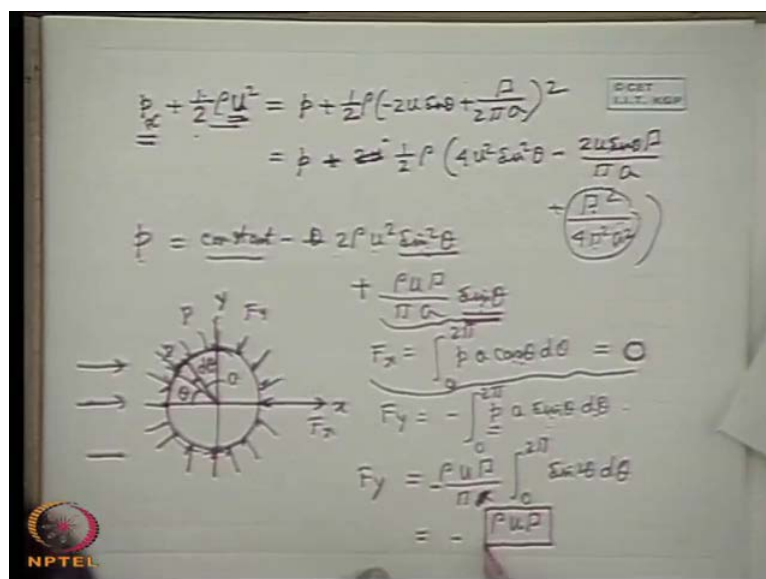 p∞ + 1/2 ρU² = p + 1/2 ρ(-2U sinθ + Γ/2πa)²
©CET
I.I.T. KGP
= p + 1/2 ρ (4U² sin²θ - 2U sinθ Γ/πa
+ Γ²/4π²a²)
p = constant - 2ρU² sin²θ
+ ρUΓ/πa sinθ
y
p
Fy
dθ
θ
a
x
Fx
Fx = ∫₀^2π p a cosθ dθ = 0
Fy = - ∫₀^2π p a sinθ dθ
Fy = - ρUΓ/π ∫₀^2π sin²θ dθ
= - ρUΓ
NPTEL